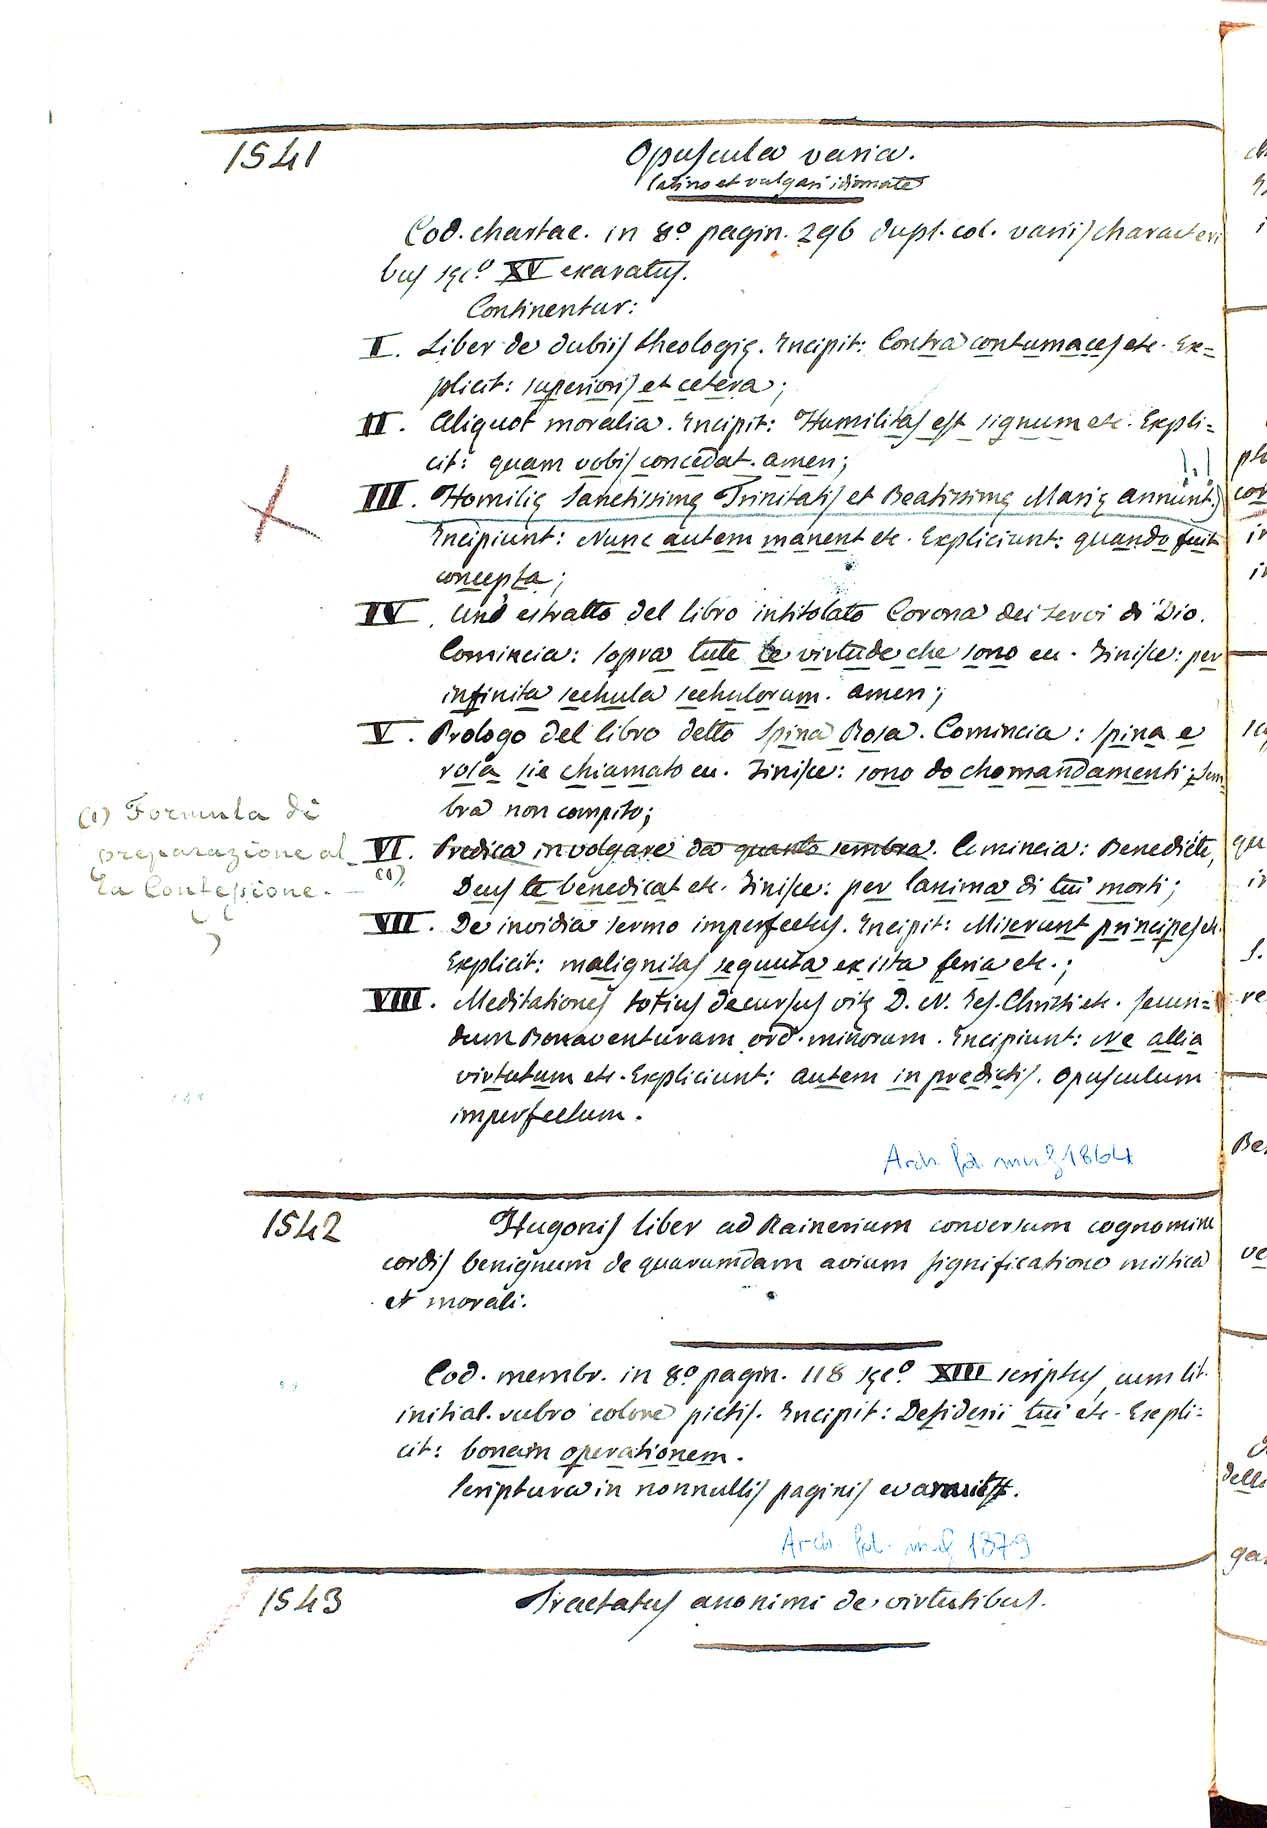 1541
Opuscula varia.
latino et vulgari idiomate
Cod. chartac. in 8º pagin. 296 dupl. col. variis characteri
bus sęcº XV exaratus.
Continentur:
I. Liber de dubiis theologię. Incipit: Contra contumaces etc. Ex=
plicit: superioris et cetera;
II. Aliquot moralia. Incipit: Humilitas est signum etc. Expli=
cit: quam vobis concedat. amen;
III. Homilię Sanctissimę Trinitatis et Beatissimę Marię annunt.
Incipiunt: Nunc autem manent etc. Expliciunt: quando fuit
concepta;
IV. Uno estratto del libro intitolato Corona dei servi di Dio.
Comincia: sopra tute le virtude che sono ec. Finisce: per
infinita sechula sechulorum. amen;
V. Prologo del libro detto Spina Rosa. Comincia: spina e
rosa sie chiamato ec. Finisce: sono do chomandamenti; sem=
bra non compito;
(1) Formula di
preparazione al
la Confessione.
VI. Predica in volgare da quanto sembra. Comincia: Benedicite,
(1).
Deus te benedicat etc. Finisce: per lanima di tui morti;
VII. De invidia sermo imperfectus. Incipit: Miserunt principes etc.
Explicit: malignitas sequuta ex ista feria etc.;
VIII. Meditationes totius decursus vitę D. N. Jes. Christi etc. secun=
dum Bonaventuram ord. minorum. Incipiunt: Ne allia
virtutum etc. Expliciunt: autem in predictis. Opusculum
imperfectum.
Arch. fot. neg 1864
1542
Hugonis liber ad Rainerium conversum cognomine
cordis benignum de quarumdam avium significatione mistica
et morali.
Cod. membr. in 8º pagin. 118 sęcº XIII scriptus, cum lit.
initial. rubro colore pictis. Incipit: Desiderii tui etc. Expli=
cit: bonam operationem.
Scriptura in nonnullis paginis evanuit.
Arch. fot. neg 1879
1543
Tractatus anonimi de virtutibus.